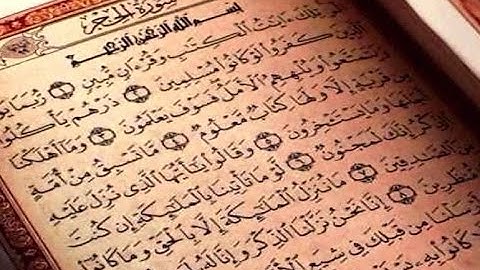 سُورَةُ الحِجْرِ
بِسْمِ اللَّهِ الرَّحْمَٰنِ الرَّحِيمِ
تِلْكَ ءَايَٰتُ الْكِتَٰبِ وَقُرْءَانٍ مُّبِينٍ ۝١ رُّبَمَا
الَّذِينَ كَفَرُوا لَوْ كَانُوا مُسْلِمِينَ ۝٢ ذَرْهُمْ يَأْكُلُوا
وَيَتَمَتَّعُوا وَيُلْهِهِمُ الْأَمَلُ فَسَوْفَ يَعْلَمُونَ ۝٣ وَمَا أَهْلَكْنَا
مِن قَرْيَةٍ إِلَّا وَلَهَا كِتَابٌ مَّعْلُومٌ ۝٤ مَّا تَسْبِقُ مِنْ أُمَّةٍ
أَجَلَهَا وَمَا يَسْتَـْٔخِرُونَ ۝٥ وَقَالُوا يَٰٓأَيُّهَا الَّذِي نُزِّلَ عَلَيْهِ
الذِّكْرُ إِنَّكَ لَمَجْنُونٌ ۝٦ لَّوْ مَا تَأْتِينَا بِالْمَلَٰٓئِكَةِ إِن كُنتَ
مِنَ الصَّٰدِقِينَ ۝٧ مَا نُنَزِّلُ الْمَلَٰٓئِكَةَ إِلَّا بِالْحَقِّ وَمَا كَانُوا
مُّنظَرِينَ ۝٨ إِنَّا نَحْنُ نَزَّلْنَا الذِّكْرَ وَإِنَّا لَهُ
أَرْسَلْنَا مِن قَبْلِكَ فِي شِيَعِ